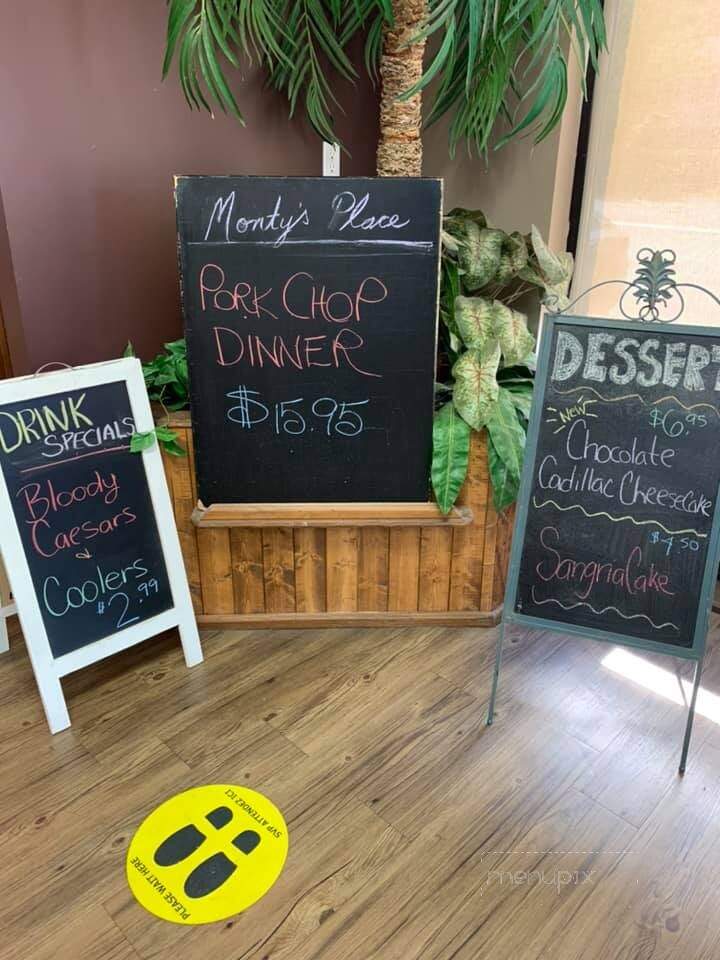 Monty's Place
PORK CHOP
DINNER
$15.95
DRINK
SPECIALS
Bloody
Caesars
&
Coolers
$2.99
DESSERT
NEW
$6.95
Chocolate
Cadillac CheeseCake
$4.50
Sangria Cake
SVP ATTENDEZ ICI
PLEASE WAIT HERE
menupix